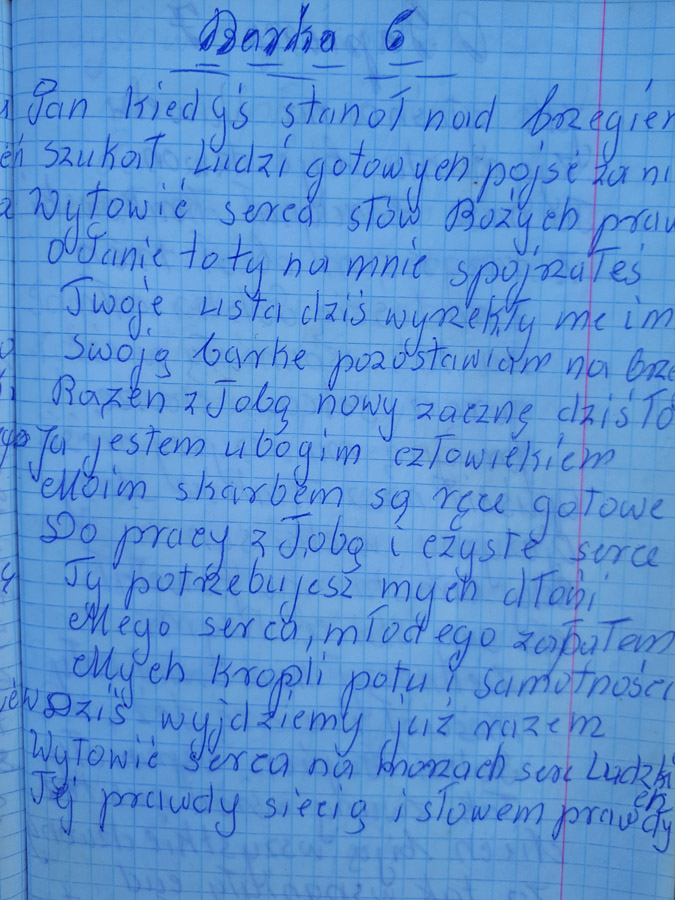 Barka 6
Pan kiedyś stanoł nad brzegiem
Szukał Ludzi gotowych pójść za ni
Wyłowić serca słów Bożych praw
O Panie to ty na mnie spojrzałeś
Twoje usta dziś wyrzekły me im
Swoją barke pozostawiam na brze
Razen z Tobą nowy zacznę dziś Ło
Ja jestem ubogim człowiekiem
Moim skarbem są ręce gotowe
Do pracy z Tobą i czyste serce
Ty potrzebujesz mych dłoni
Mego serca, młodego zapałem
Mych kropli potu i samotności
Dziś wyjdziemy już razem
Wyłowić serca na morzach serc Ludzki
ch
Tej prawdy siecią i słowem prawdy